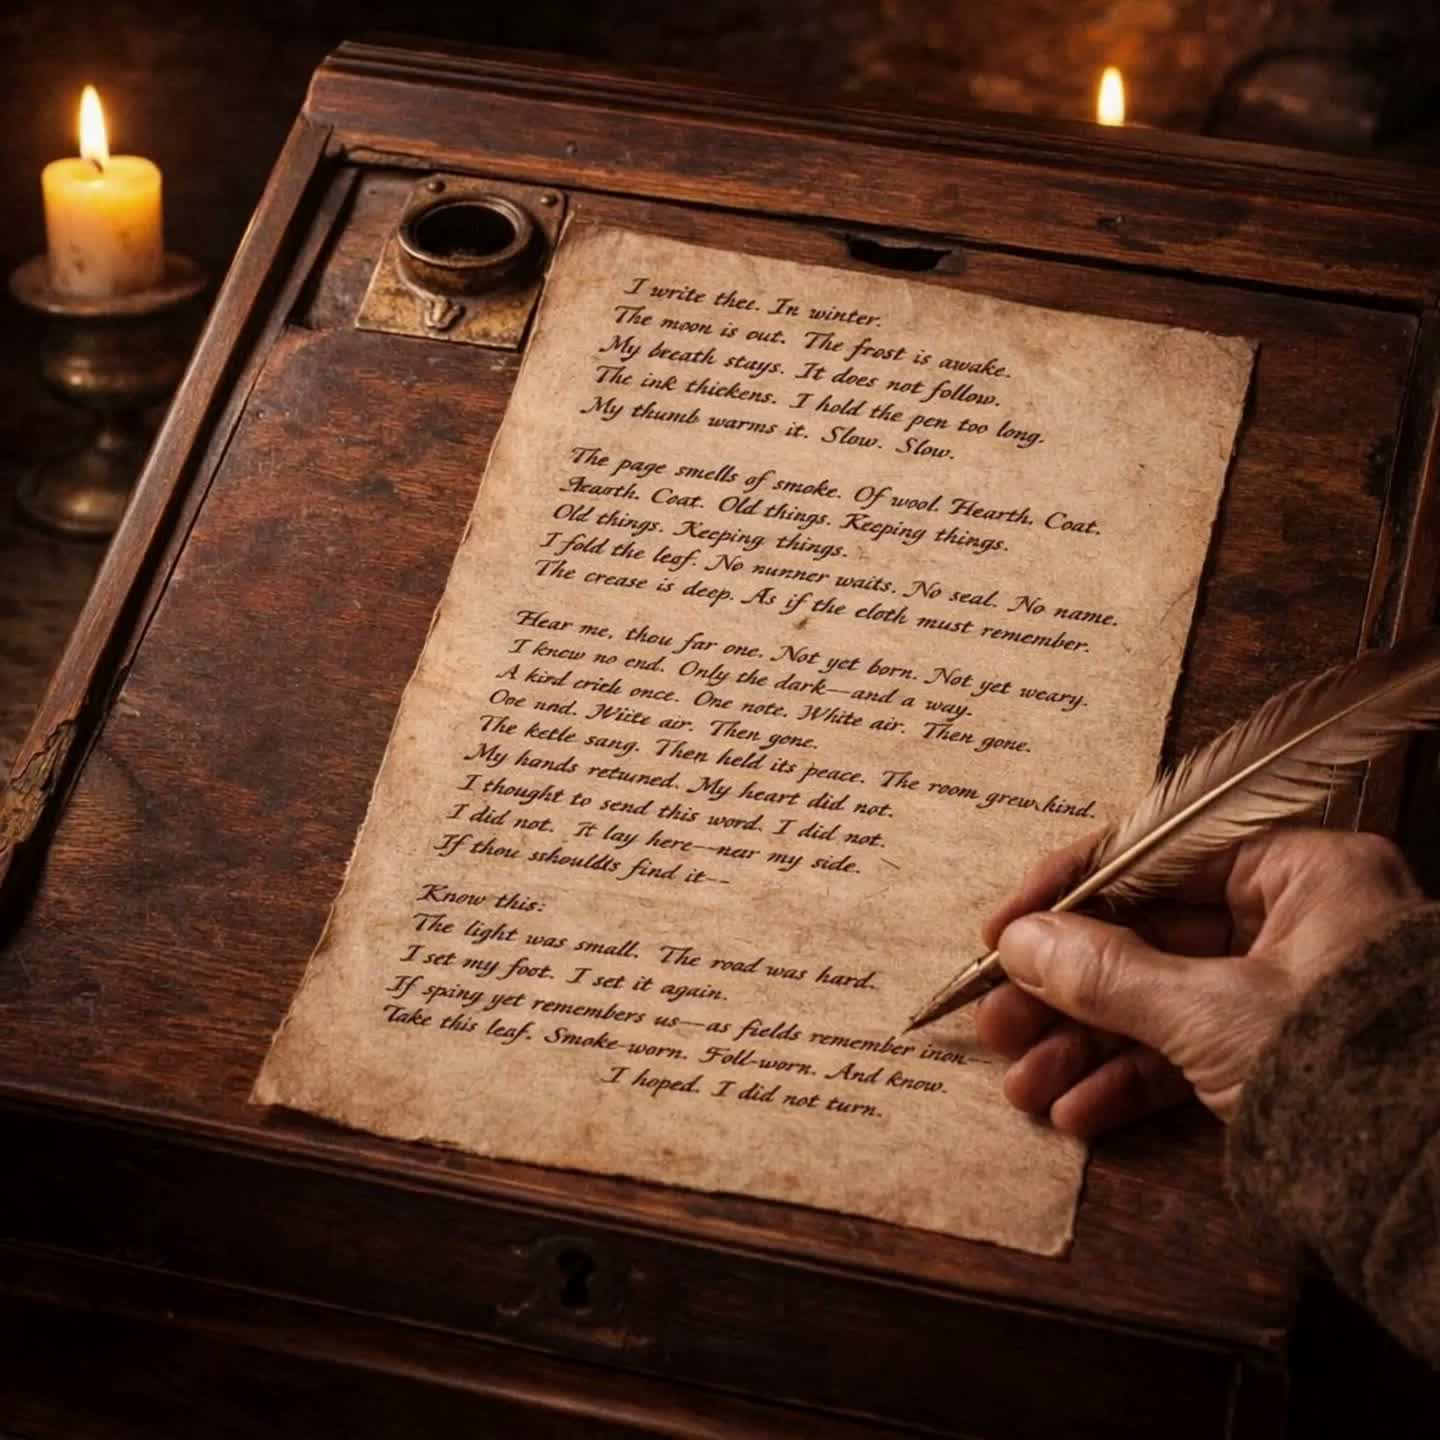 I write thee. In winter.
The moon is out. The frost is awake.
My breath stays. It does not follow.
The ink thickens. I hold the pen too long.
My thumb warms it. Slow. Slow.
The page smells of smoke. Of wool. Hearth. Coat.
Hearth. Coat. Old things. Keeping things.
Old things. Keeping things.
I fold the leaf. No nunner waits. No seal. No name.
The crease is deep. As if the cloth must remember.
Hear me, thou far one. Not yet born. Not yet weary.
I knew no end. Only the dark—and a way.
A kird crieh once. One note. White air. Then gone.
Ooe nnd. Wiite air. Then gone.
The ketle sang. Then held its peace. The room grew kind.
My hands retuined. My heart did not.
I thought to send this word. I did not.
I did not. It lay here—near my side.
If thou sshouldts find it--
Know this:
The light was small. The road was hard.
I set my foot. I set it again.
If sping yet remembers us—as fields remember inon—
Take this leaf. Smoke-worn. Foll-worn. And know.
I hoped. I did not turn.